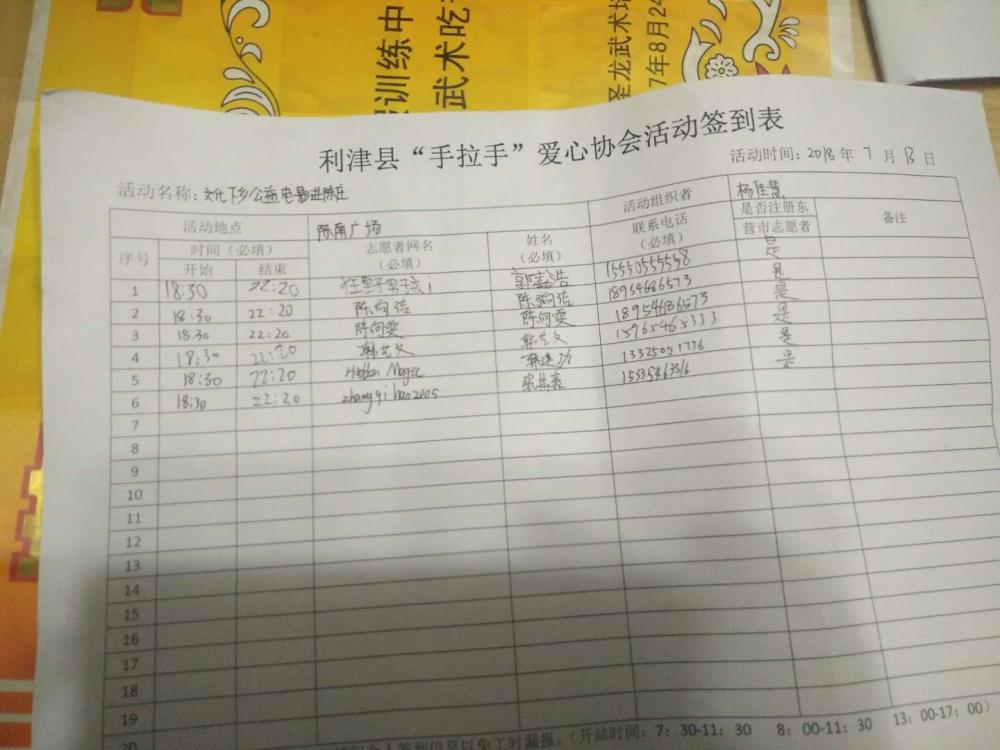 训练中
武术吃
圣龙武术培
7年8月24
利津县“手拉手”爱心协会活动签到表
活动时间：2018年 7 月 13 日
活动名称：文化下乡公益电影进陈庄
活动地点 陈南广场 活动组织者 杨佳慧
序号 时间（必填） 志愿者网名（必填） 姓名（必填） 联系电话（必填） 是否注册东营市志愿者 备注
开始 结束
1 18:30 22:20 狂野男孩i 郭嘉浩 15550555558 是
2 18:30 22:20 陈向浩 陈向浩 18954686573 是
3 18:30 22:20 陈向雯 陈向雯 18954686573 是
4 18:30 22:20 韩艺文 韩艺文 15965465333 是
5 18:30 22:20 Magic 13325051776 是
6 18:30 22:20 zhangqihao2005 15335463316 是
7
8
9
10
11
12
13
14
15
16
17
18
19
20
人签到信息以免工时漏报。（开站时间：7：30-11：30 8：00-11：30 13：00-17：00）